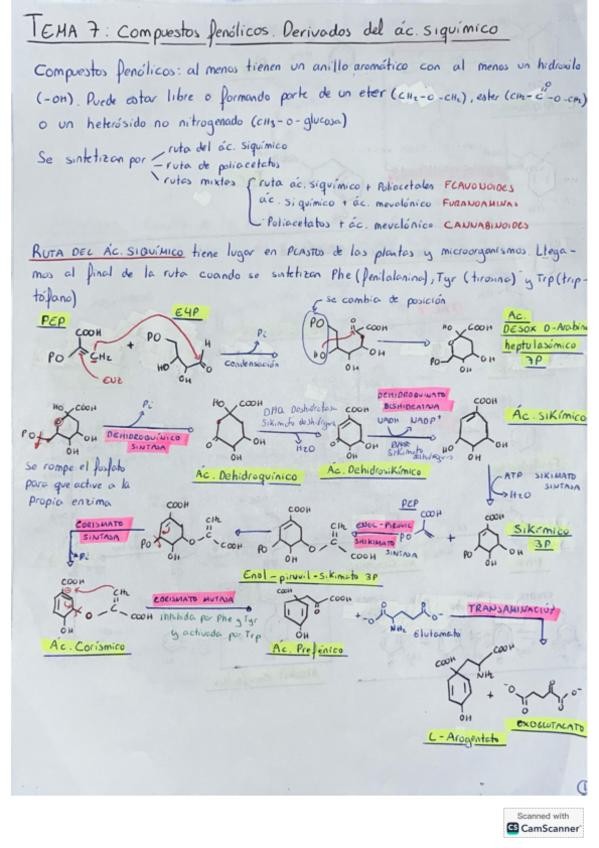 TEMA 7: Compuestos fenólicos. Derivados del ác. siquímico
Compuestos fenólicos: al menos tienen un anillo aromático con al menos un hidroxilo
(-OH). Puede estar libre o formando parte de un eter (CH2-O-CH2), ester
o un heterósido no nitrogenado (CH3-O-glucosa)
Se sintetizan por
ruta del ác. siquímico
ruta de poliacetatos
rutas mixtas
ruta ác. siquímico + Poliacetatos FLAVONOIDES
ác. siquímico + ác. mevalónico
Poliacetatos + ác. mevalónico CANNABINOIDES
RUTA DEL ÁC. SIQUÍMICO tiene lugar en PLASTOS de las plantas y microorganismos. Llega-
mos al final de la ruta cuando se sintetizan Phe (fenilalanina), Tyr (tirosina) y Trp (trip-
tófano)
se cambia de posición
PEP
E4P
Ac.
DESOX D-Arabino
heptulosónico
7P
COOH
PO
CH2
+
PO
HO
OH
H
O
Pi
Condensación
PO
HO
COOH
OH
OH
HO
COOH
PO
OH
OH
HO COOH
PO
OH
OH
Pi
DEHIDROQUÍNICO
SINTASA
HO COOH
O
OH
OH
H2O
DEHIDROQUINATO
NADH NADP+
COOH
O
OH
OH
COOH
HO
OH
OH
Ác. siKímico
Se rompe el fosfato
para que active a la
Propia enzima
Ác. Dehidroquínico
Ác. Dehidrosikímico
ATP SIKIMATO
SINTASA
H2O
CORISMATO
SINTASA
Pi
COOH
PO
OH
CH2
O
COOH
COOH
PO
OH
CH2
O
COOH
ENOL-PIRUVIL
SHIKIMATO
SINTASA
PEP
COOH
PO
+
COOH
PO
OH
OH
Sikímico
3P
Enol-piruvil-Sikimato 3P
COOH
OH
CH2
O
COOH
CORISMATO MUTASA
inhibida por Phe y Tyr
y activada por Trp
COOH
COOH
O
OH
+
NH2
Glutamato
TRANSAMINACIÓN
Ác. Corísmico
Ác. Prefénico
COOH
COOH
NH2
OH
+
L-Arogentato
EXOGLUTALATO
1
Scanned with
CS CamScanner